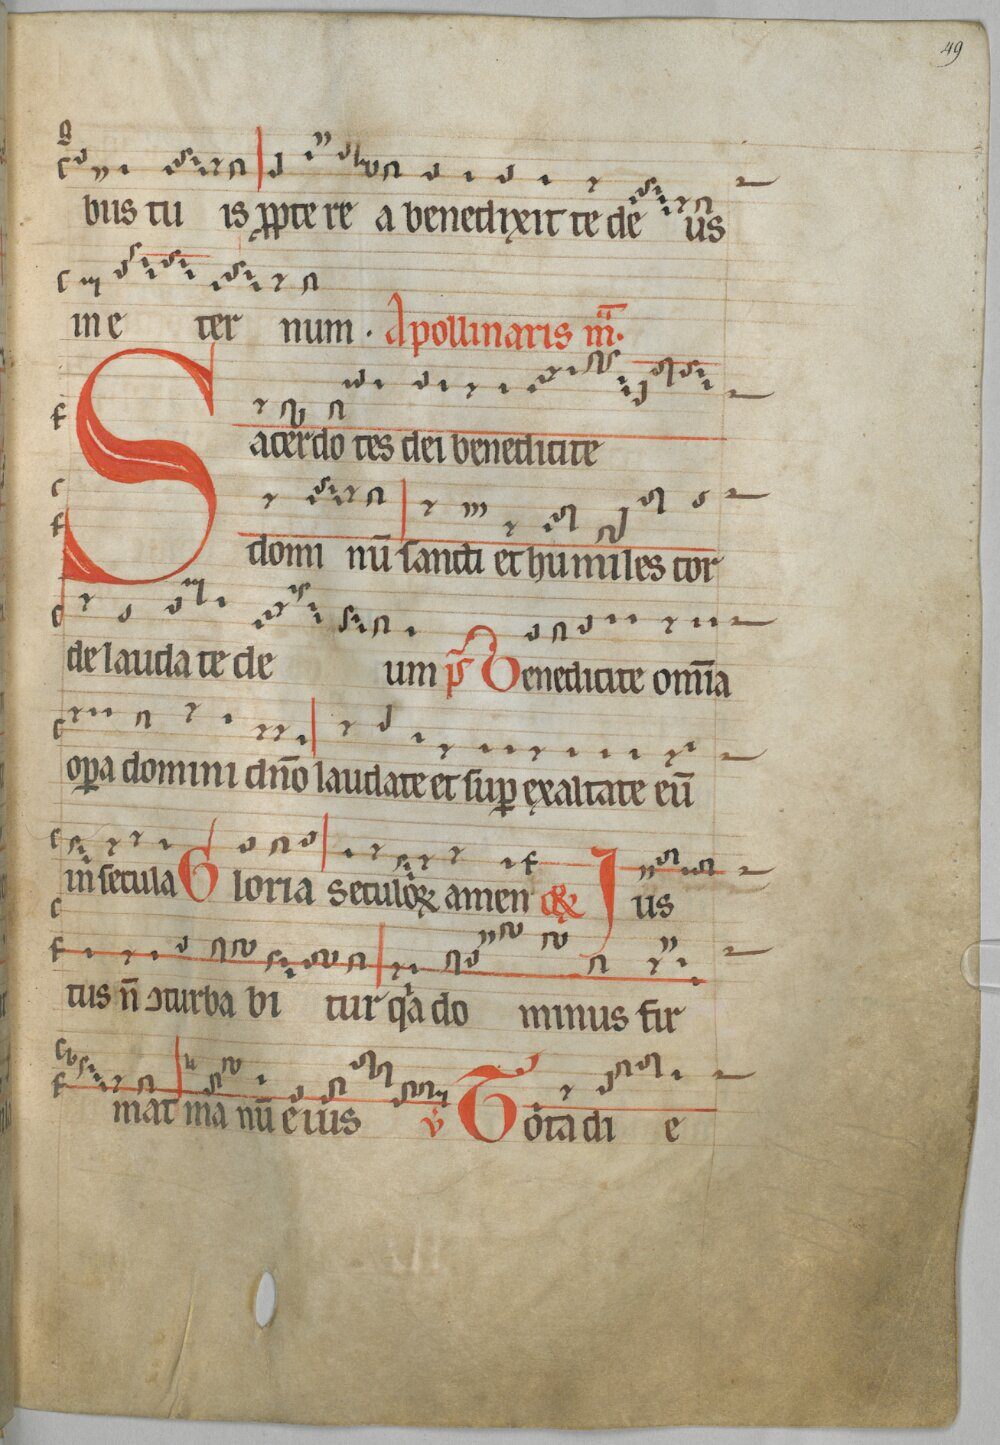 49
bus tu is ꝓpte re a benedixit te de us
in e ter num . Apollinaris m̅.
Sacerdo tes dei benedicite
domi nū sancti et humiles cor
de lauda te de um pͫ Benedicite om̅ia
oꝑa domini dn̅o laudate et suꝑ exaltate eū
in secula Gloria seculoꝝ amen Ius
tus n̅ ↄturba bi tur qͣa do minus fir
mat ma nū eius v̇ Tota di e